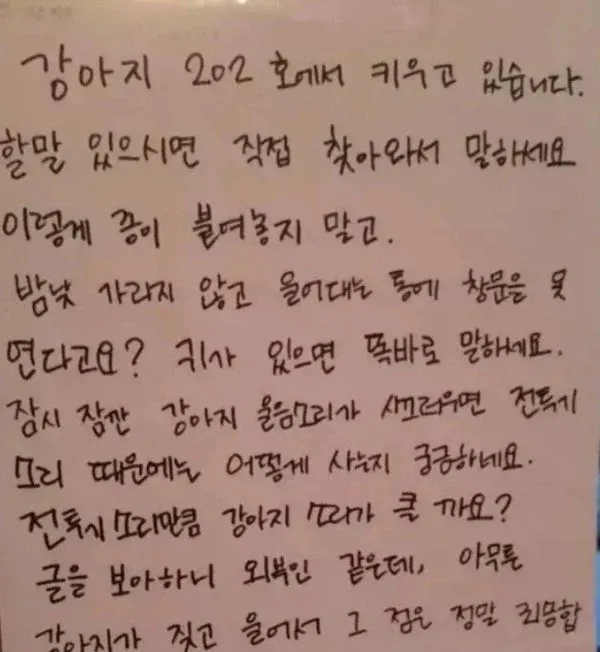 강아지 202 호에서 키우고 있습니다.
할말 있으시면 직접 찾아와서 말하세요
이렇게 종이 붙여놓지 말고.
밤낮 가리지 않고 울어대는 통에 창문은 못
연다고요? 귀가 있으면 똑바로 말하세요.
잠시 잠깐 강아지 울음소리가 시끄러우면 전투기
소리 때문에는 어떻게 사는지 궁금하네요.
전투기 소리만큼 강아지 소리가 클 까요?
글을 보아하니 외부인 같은데, 아무튼
강아지가 짖고 울어서 그 점은 정말 죄송합